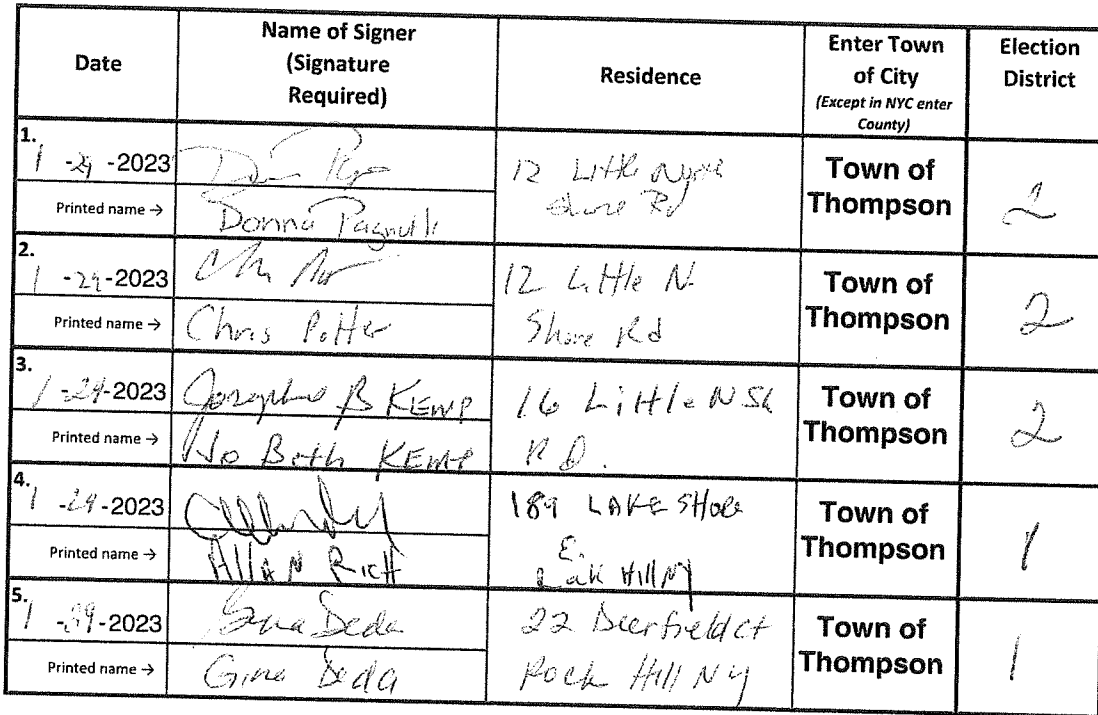 Date
Name of Signer
(Signature
Required)
Residence
Enter Town
of City
(Except in NYC enter
County)
Election
District
1.
1 -29 -2023
12 Little North
Shore Rd
Town of
Thompson
2
Printed name →
Donna Pagnulli
2.
1 -29-2023
12 Little N.
Shore Rd
Town of
Thompson
2
Printed name →
Chris Potter
3.
1 -29-2023
Josephine B KEMP
16 Little N Sh
RD.
Town of
Thompson
2
Printed name →
Jo Beth KEMP
4.
1 -29-2023
189 LAKE SHORE
E.
Hill NY
Town of
Thompson
1
Printed name →
AllAN RICH
5.
1 -29-2023
Gina Deda
22 Deerfield ct
Rock Hill NY
Town of
Thompson
1
Printed name →
Gina Deda